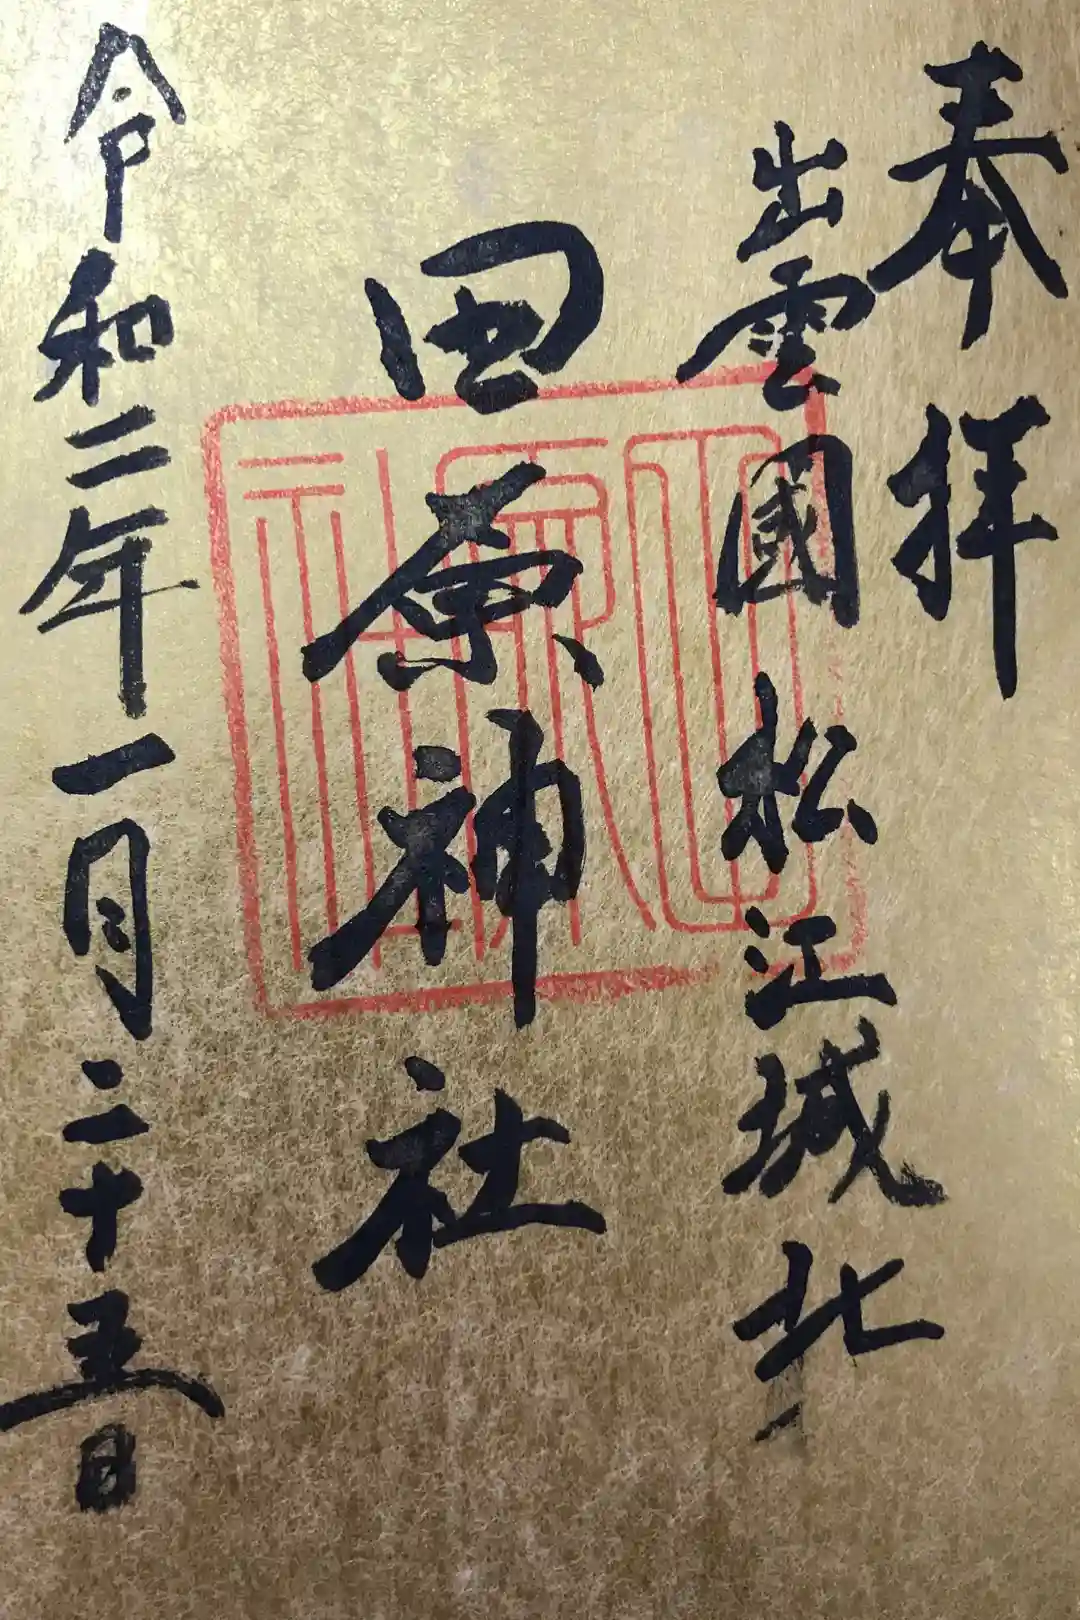 奉拝
出雲國松江城北
田原神社
令和二年一月二十五日